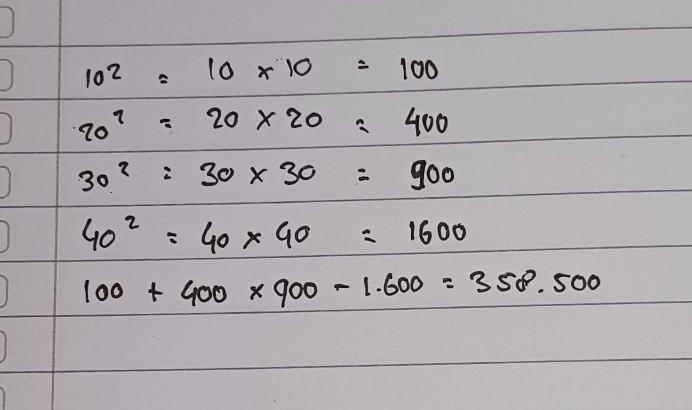 10² = 10 × 10 = 100
20² = 20 × 20 = 400
30² = 30 × 30 = 900
40² = 40 × 40 = 1600
100 + 400 × 900 - 1.600 = 358.500